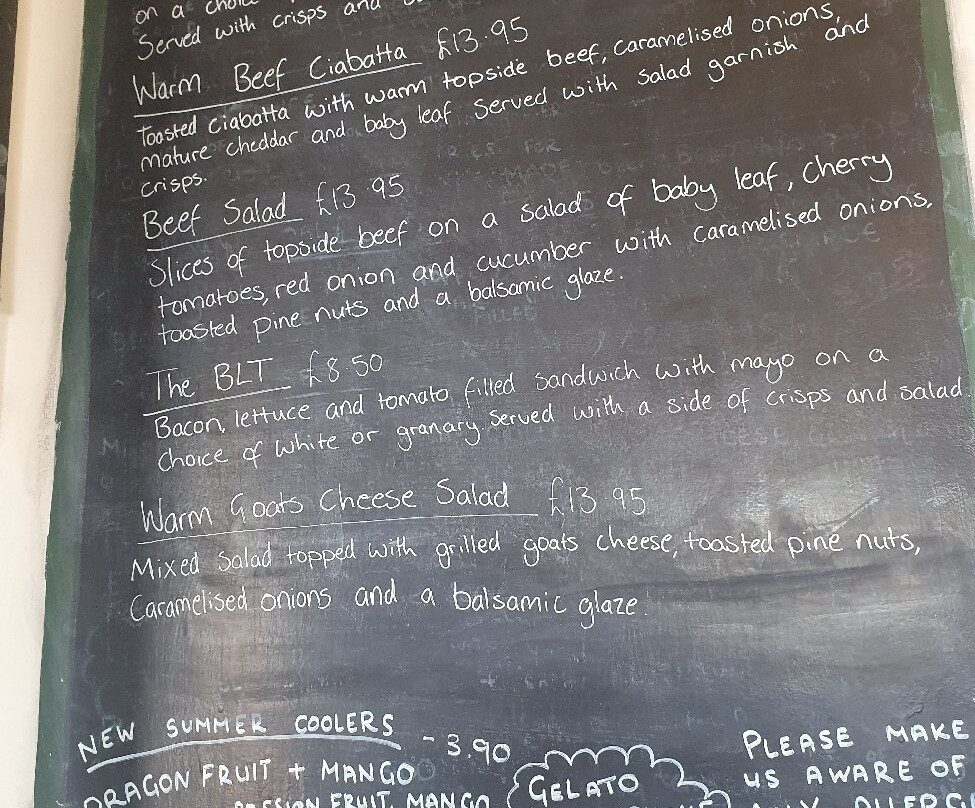 on a choice
Served with crisps and
Warm Beef Ciabatta £13.95
Toasted ciabatta with warm topside beef, caramelised onions,
mature cheddar and baby leaf Served with salad garnish and
crisps.
Beef Salad £13.95
Slices of topside beef on a salad of baby leaf, cherry
tomatoes, red onion and cucumber with caramelised onions,
toasted pine nuts and a balsamic glaze.
The BLT £8.50
Bacon, lettuce and tomato filled sandwich with mayo on a
choice of white or granary. Served with a side of crisps and salad
Warm Goats Cheese Salad £13.95
Mixed salad topped with grilled goats cheese, toasted pine nuts,
Caramelised onions and a balsamic glaze.
NEW SUMMER COOLERS - 3.90
DRAGON FRUIT + MANGO
FRUIT, MANGO
GELATO
PLEASE MAKE
US AWARE OF